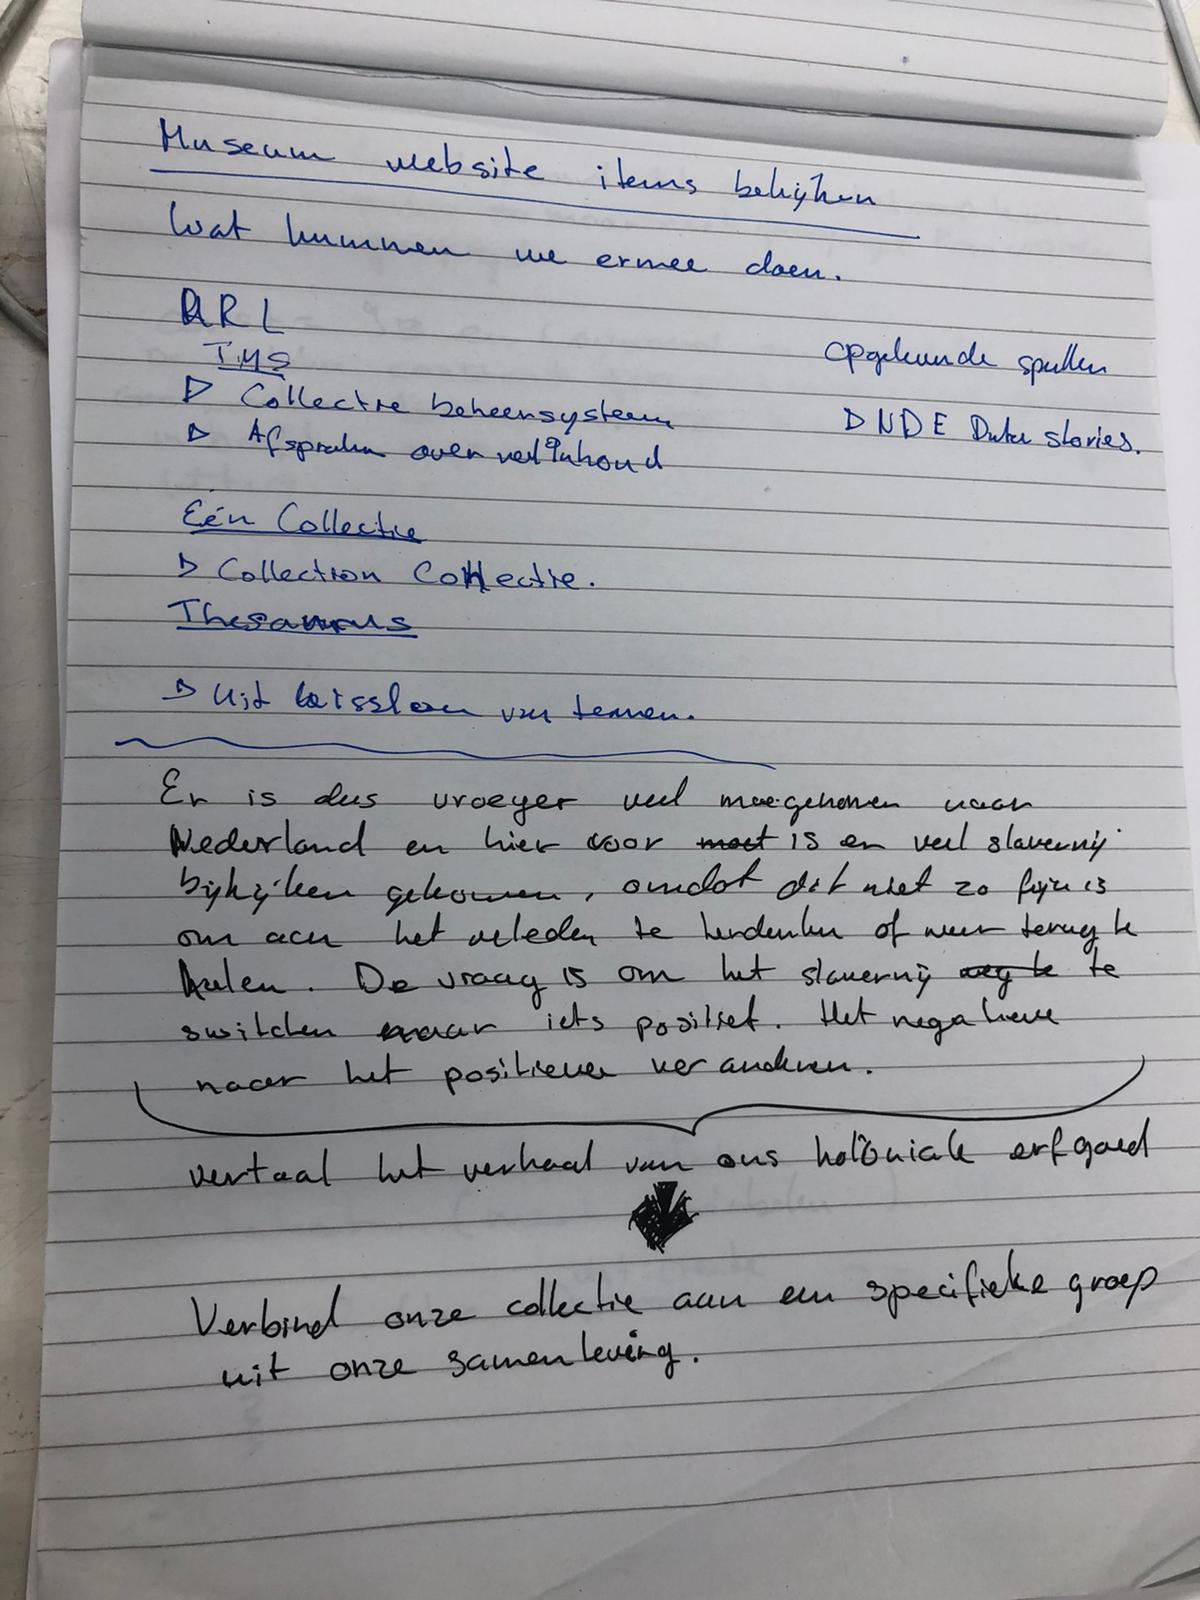 Museum website items bekijken
Wat kunnen we ermee doen.
TMS
▷ Collectie beheersysteem
▷ Afspraken over veel inhoud
spullen
▷ NDE Data stories.
Één Collectie
▷ Collection Connectie.
Thesaurus
▷ Uit van termen.
Er is dus vroeger veel meegenomen naar
Nederland en hier voor moet is er veel slavernij
bijkijken gekomen, omdat dit niet zo fijn is
om aan het veleden te herdenken of weer terug te
halen. De vraag is om het slavernij weg te te
switchen naar iets positief. Het negatieve
naar het positieve veranderen.
vertaal het verhaal van ons koloniale erfgoed
Verbind onze collectie aan een specifieke groep
uit onze samenleving.